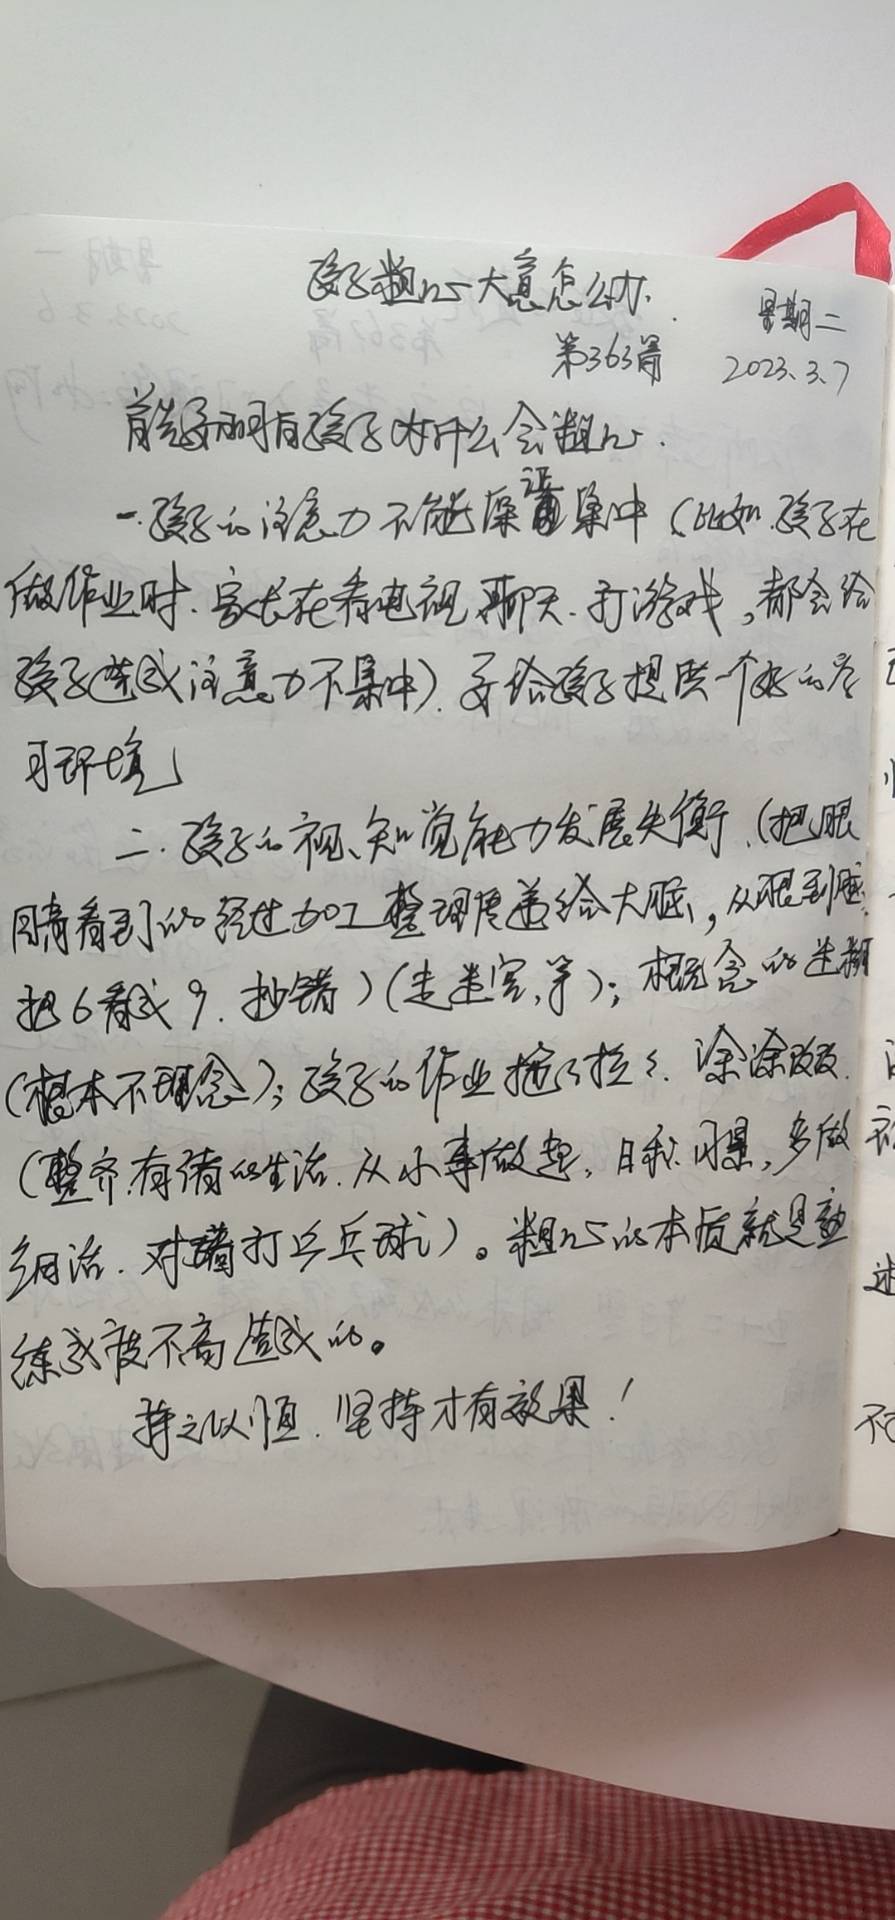 孩子粗心大意怎么办.
星期二
第363篇
2023.3.7
首先要明白孩子为什么会粗心.
一.孩子的注意力不能集中(比如.孩子在
做作业时.家长在看电视聊天.打游戏,都会给
孩子造成注意力不集中).要给孩子提供一个好的学
习环境
二.孩子的视、知觉能力发展失衡.(把眼
睛看到的经过加工整理传递给大脑,从眼到脑.
把6看成9.抄错)(走迷宫.等);概念的迷糊
(根本不理念);孩子的作业拖拖拉拉.涂涂改改.
(整齐.有绪的生活.从小事做起.日积月累,多做
细活.对墙打乒乓球)。粗心的本质就是熟
练成度不高造成的。
持之以恒.坚持才有效果!